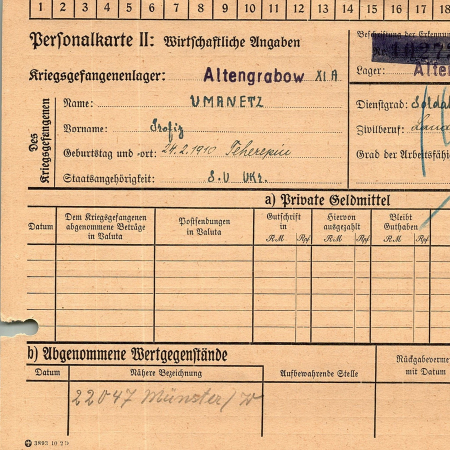 1 2 3 4 5 6 7 8 9 10 11 12 13 14 15 16 17 18
Personalkarte II: Wirtschaftliche Angaben
Beschriftung der Erkennu
Kriegsgefangenenlager: Altengrabow XI A
Lager: Alte
Des Kriegsgefangenen
Name: UMANETZ
Dienstgrad: Soldat
Vorname:
Zivilberuf:
Geburtstag und -ort: 24.2.1910
Grad der Arbeitsfähi
Staatsangehörigkeit: S.U UKr.
a) Private Geldmittel
Datum
Dem Kriegsgefangenen abgenommene Beträge in Valuta
Postsendungen in Valuta
Gutschrift in
RM Rpf
Hiervon ausgezahlt
RM Rpf
Bleibt Guthaben
RM Rpf
b) Abgenommene Wertgegenstände
Datum
Nähere Bezeichnung
Aufbewahrende Stelle
Rückgabeverme
mit Datum
22047 Münster/W